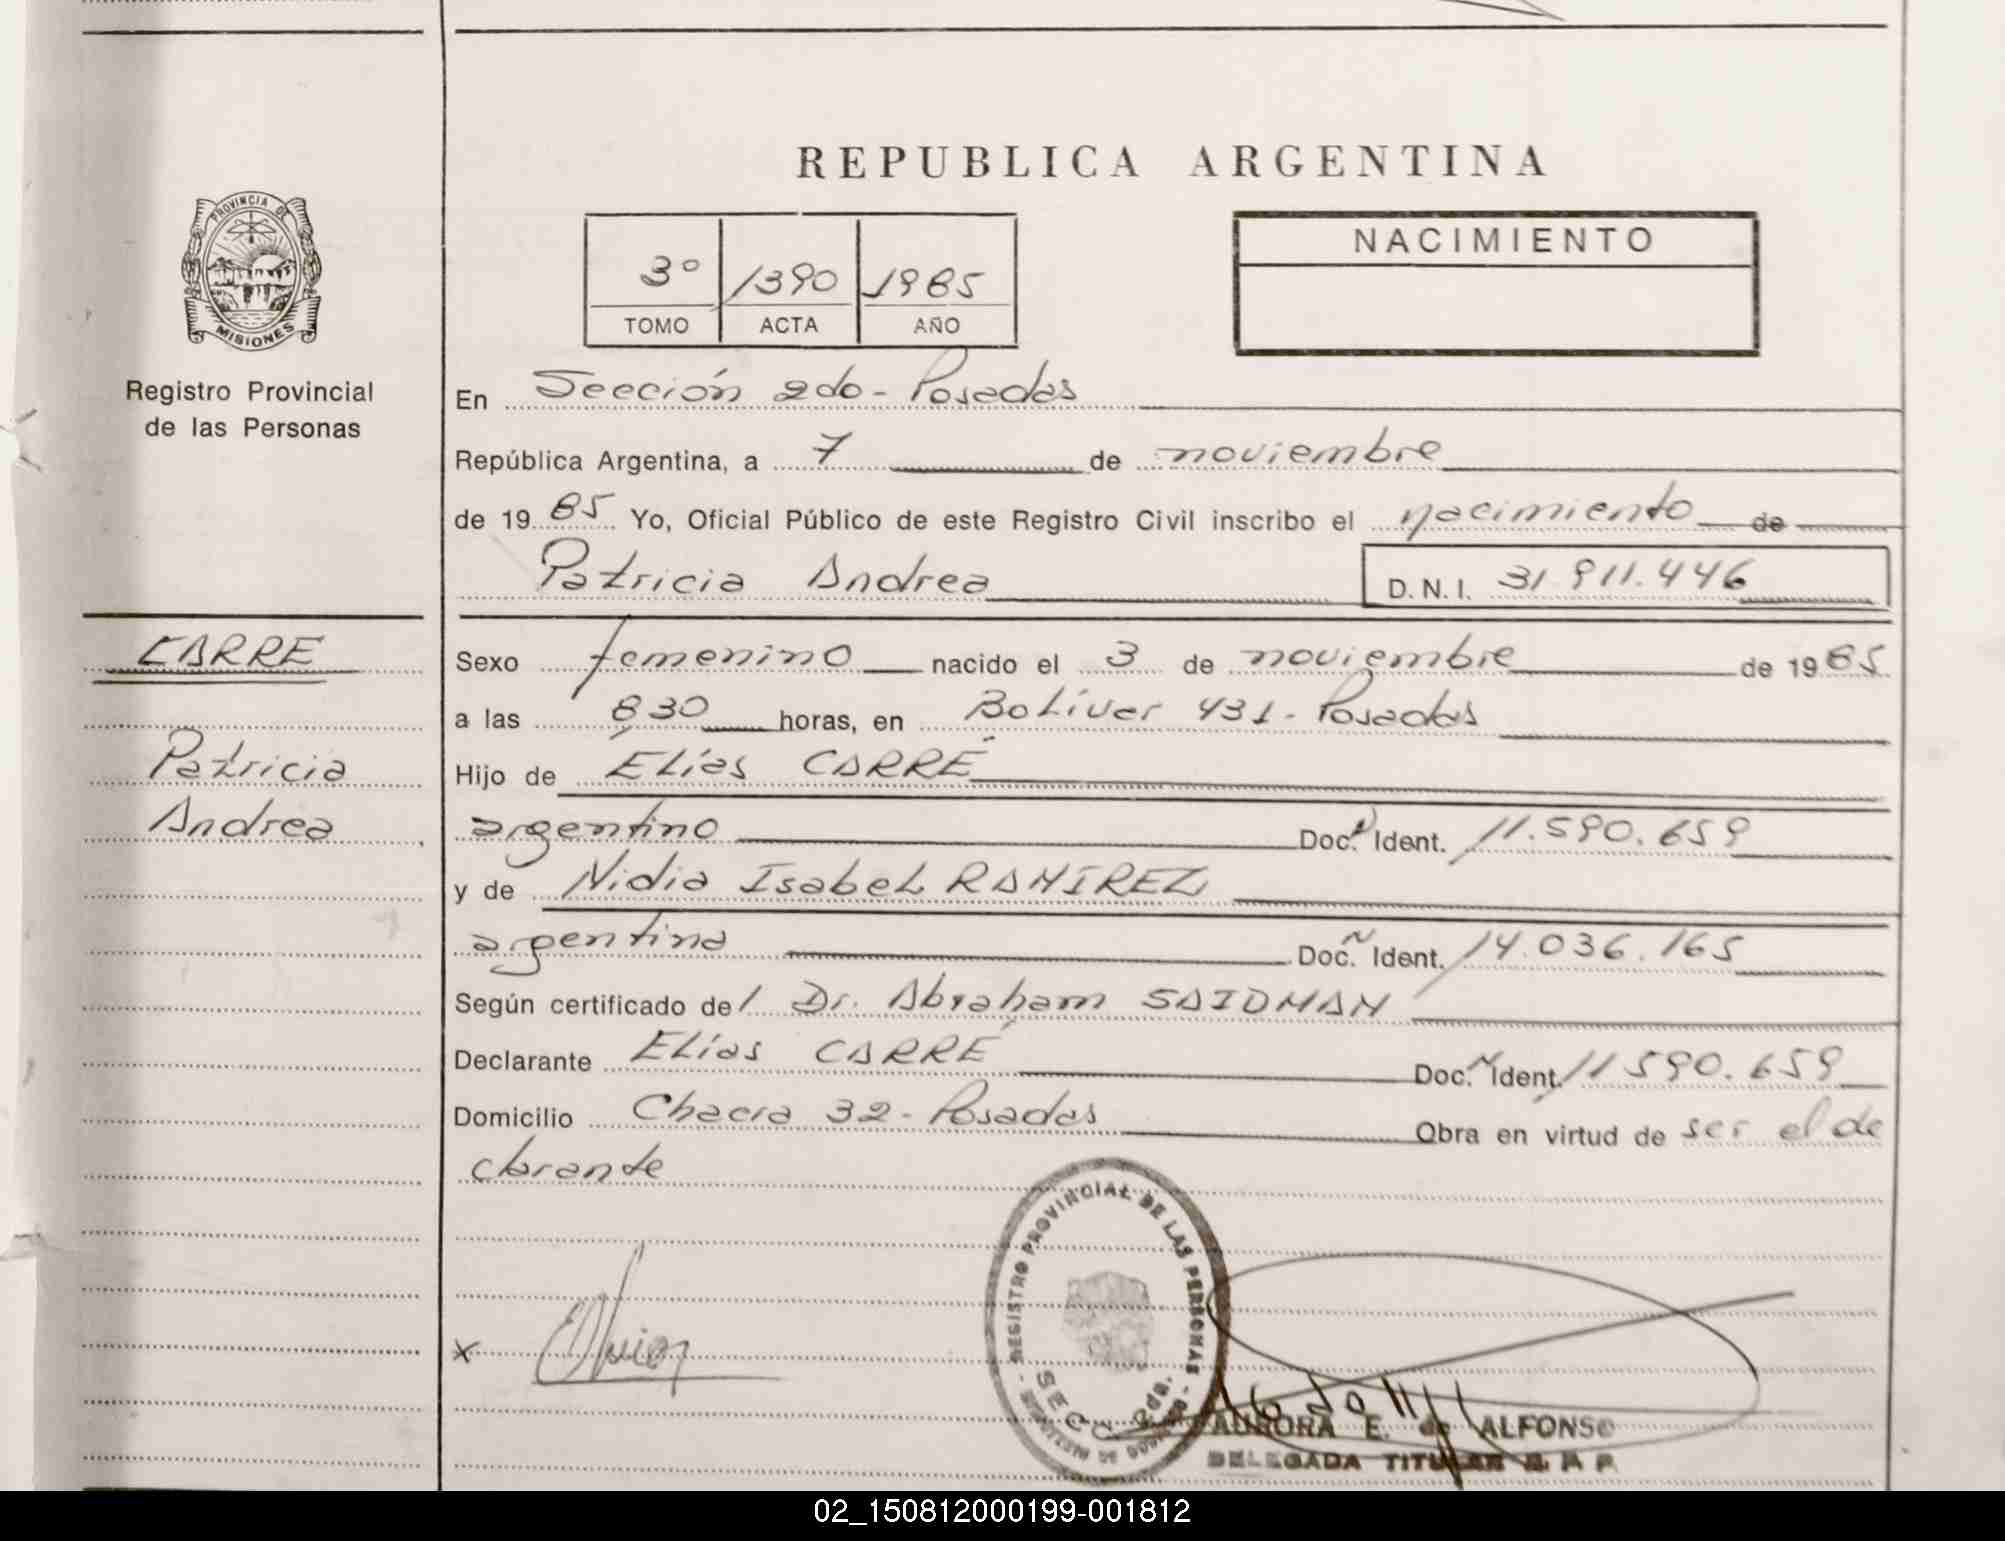 REPUBLICA ARGENTINA
PROVINCIA DE
MISIONES
Registro Provincial
de las Personas
3º 1390 1985
TOMO ACTA AÑO
NACIMIENTO
En Sección 2do - Posadas
República Argentina, a 7 de noviembre
de 1985 Yo, Oficial Público de este Registro Civil inscribo el nacimiento de
Patricia Andrea D.N.I. 31.911.446
CARRE
Patricia
Andrea
Sexo femenino nacido el 3 de noviembre de 1985
a las 8,30 horas, en Bolívar 431 - Posadas
Hijo de Elías CARRÉ
argentino Doc. Ident. 11.590.659
y de Nidia Isabel RAMIREZ
argentina Doc. Ident. 14.036.165
Según certificado del Dr. Abraham SAIDMAN
Declarante Elías CARRÉ Doc. Ident. 11.590.659
Domicilio Chacra 32 - Posadas Obra en virtud de ser el de
clarante
REGISTRO PROVINCIAL DE LAS PERSONAS
SECC. 2da.
x
AURORA E. de ALFONSO
DELEGADA TITULAR R. P. P.
02_150812000199-001812